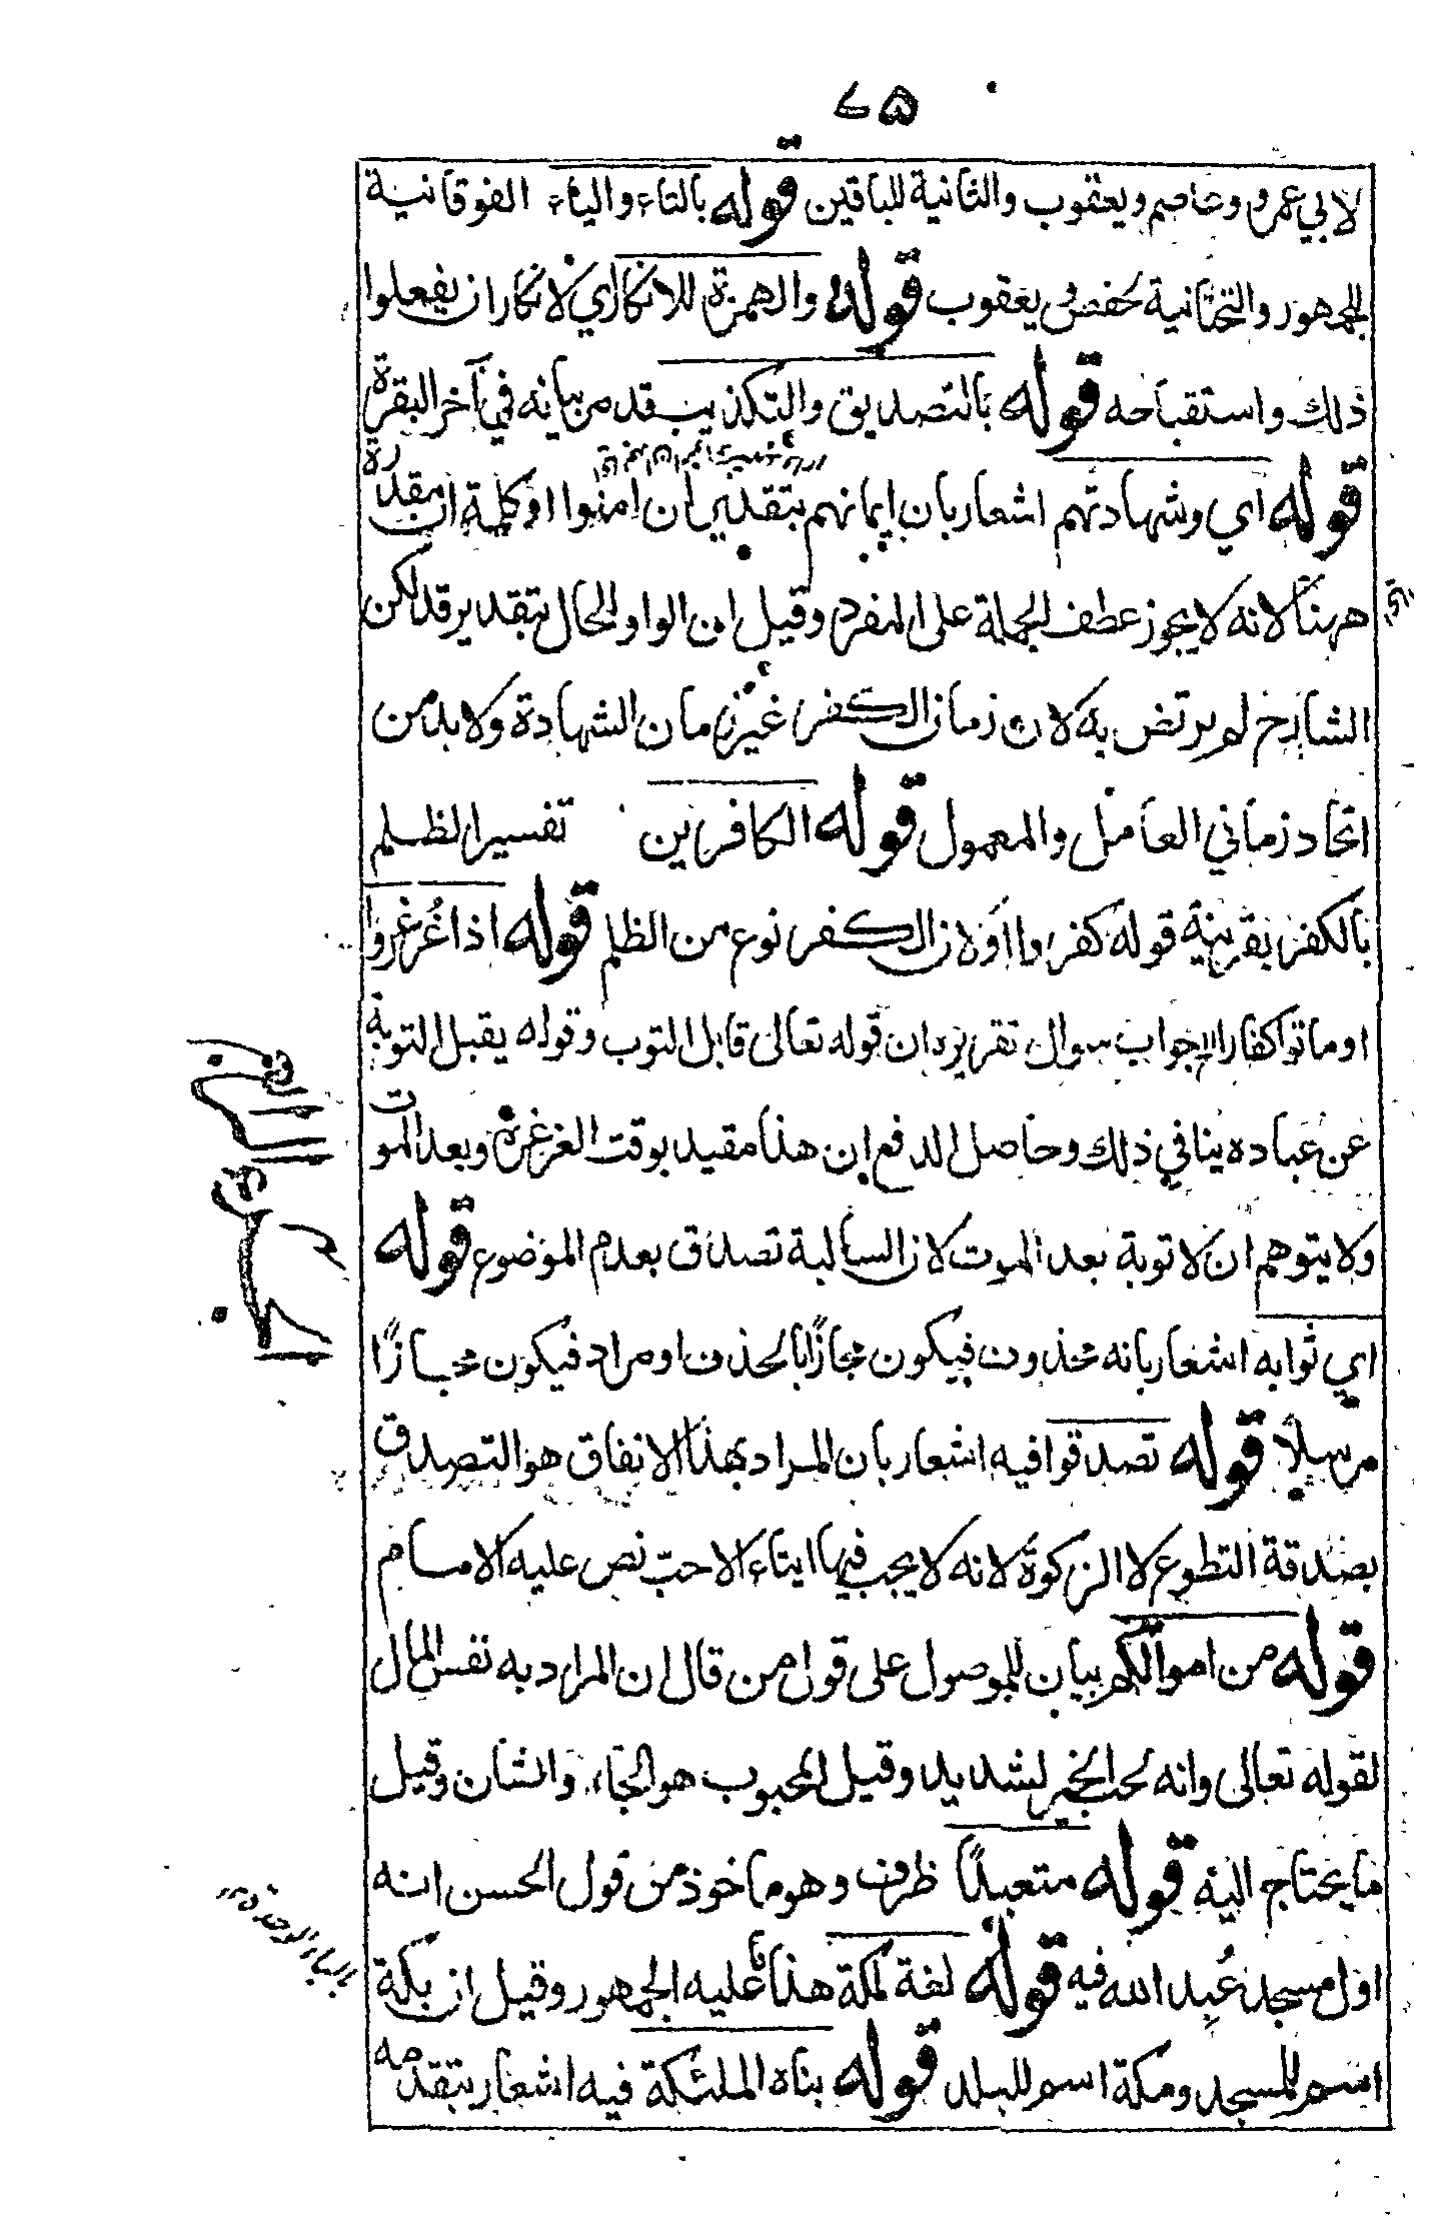 ٧٥
لابي عمرو وعاصم ويعقوب والثانية للباقين قوله بالتاء والياء الفوقانية
للجمهور والتحتانية لحفص ويعقوب قوله والهمزة للانكار اي لانكار ان يفعلوا
ذلك واستقباحه قوله بالتصديق والتكذيب قد مر بيانه في آخر البقرة
قوله اي وشهادتهم اشعار بان ايمانهم بتقدير ان امنوا او كلمة ان مقدرة
ههنا لانه لا يجوز عطف الجملة على المفرد وقيل ان الواو للحال بتقدير قد لكن
الشارح لم يرتض به لان زمان الكفر غير زمان الشهادة ولا بد من
اتحاد زماني العامل والمعمول قوله الكافرين تفسير الظلم
بالكفر بقرينة قوله كفروا اولان الكفر نوع من الظلم قوله اذا غرغروا
او ماتوا كفارا الخ جواب سوال تقريره ان قوله تعالى قابل التوب وقوله يقبل التوبة
عن عباده ينافي ذلك وحاصل الدفع ان هذا مقيد بوقت الغرغرة وبعد الموت
ولا يتوهم ان لا توبة بعد الموت لان السالبة تصدق بعدم الموضوع قوله
اي ثوابه اشعار بانه محذوف فيكون مجازًا بالحذف او مراد فيكون مجازًا
مرسلاً قوله تصدقوا فيه اشعار بان المراد بهذا الانفاق هو التصدق
بصدقة التطوع لا الزكوة لانه لا يجب فيها ايتاء الاحبّ نص عليه الامام
قوله من اموالكم بيان للموصول على قول من قال ان المراد به نفس المال
لقوله تعالى وانه لحب الخير لشديد وقيل المحبوب هو الجاه والشان وقيل
ما يحتاج اليه قوله متعبداً ظرف وهو ماخوذ من قول الحسن انه
اول مسجد عُبِد الله فيه قوله لغة لمكة هذا ما عليه الجمهور وقيل ان بكة
اسم للمسجد ومكة اسم للبلد قوله بناه الملئكة فيه اشعار بتقدمه
بالباء الموحدة